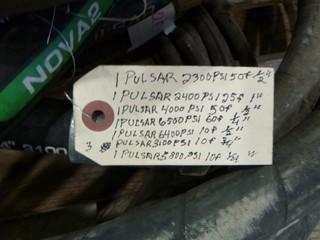 NOVAO
4" 3100
1 PULSAR 2300 PSI 50f 1/2"
1 PULSAR 2400 PSI 25f 1"
1 PULSAR 4000 PSI 50f 1/2"
1 PULSAR 6500 PSI 60f 1/4"
1 PULSAR 6400 PSI 10f 1/2"
PULSAR 3100 PSI 10f 3/4"
1 PULSAR 5800 PSI 10f 3/4"
3